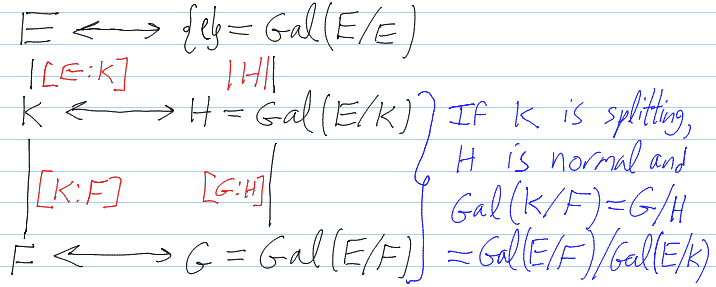 E ⟷ {e} = Gal(E/E)
|[E:K] |H||
K ⟷ H = Gal(E/K)
If K is splitting,
H is normal and
|[K:F] [G:H]|
Gal(K/F) = G/H
F ⟷ G = Gal(E/F)
= Gal(E/F)/Gal(E/K)